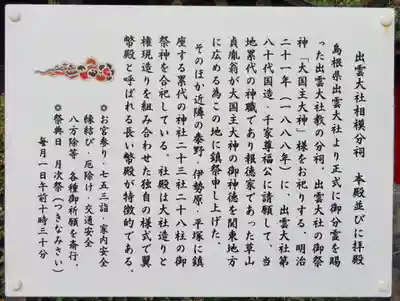 出雲大社相模分祠　本殿並びに拝殿
島根県出雲大社より正式に御分霊を賜
った出雲大社教の分祠、出雲大社の御祭
神「大国主大神」様をお祀りする。明治
二十一年（一八八八年）に、出雲大社第
八十代国造・千家尊福公に請願して、当
地累代の神職であり報徳家であった草山
貞胤翁が大国主大神の御神徳を関東地方
に広める為この地に鎮祭申し上げた。
そのほか近隣の秦野、伊勢原、平塚に鎮
座する累代の神社二十三社二十八柱の御
祭神を合祀している。社殿は大社造りと
権現造りを組み合わせた独自の様式で翼
幣殿と呼ばれる長い幣殿が特徴的である。
◎お宮参り・七五三詣・家内安全
縁結び・厄除け・交通安全
八方除等、各種御祈願を斎行。
◎祭典日　月次祭（つきなみさい）
毎月一日午前十時三十分